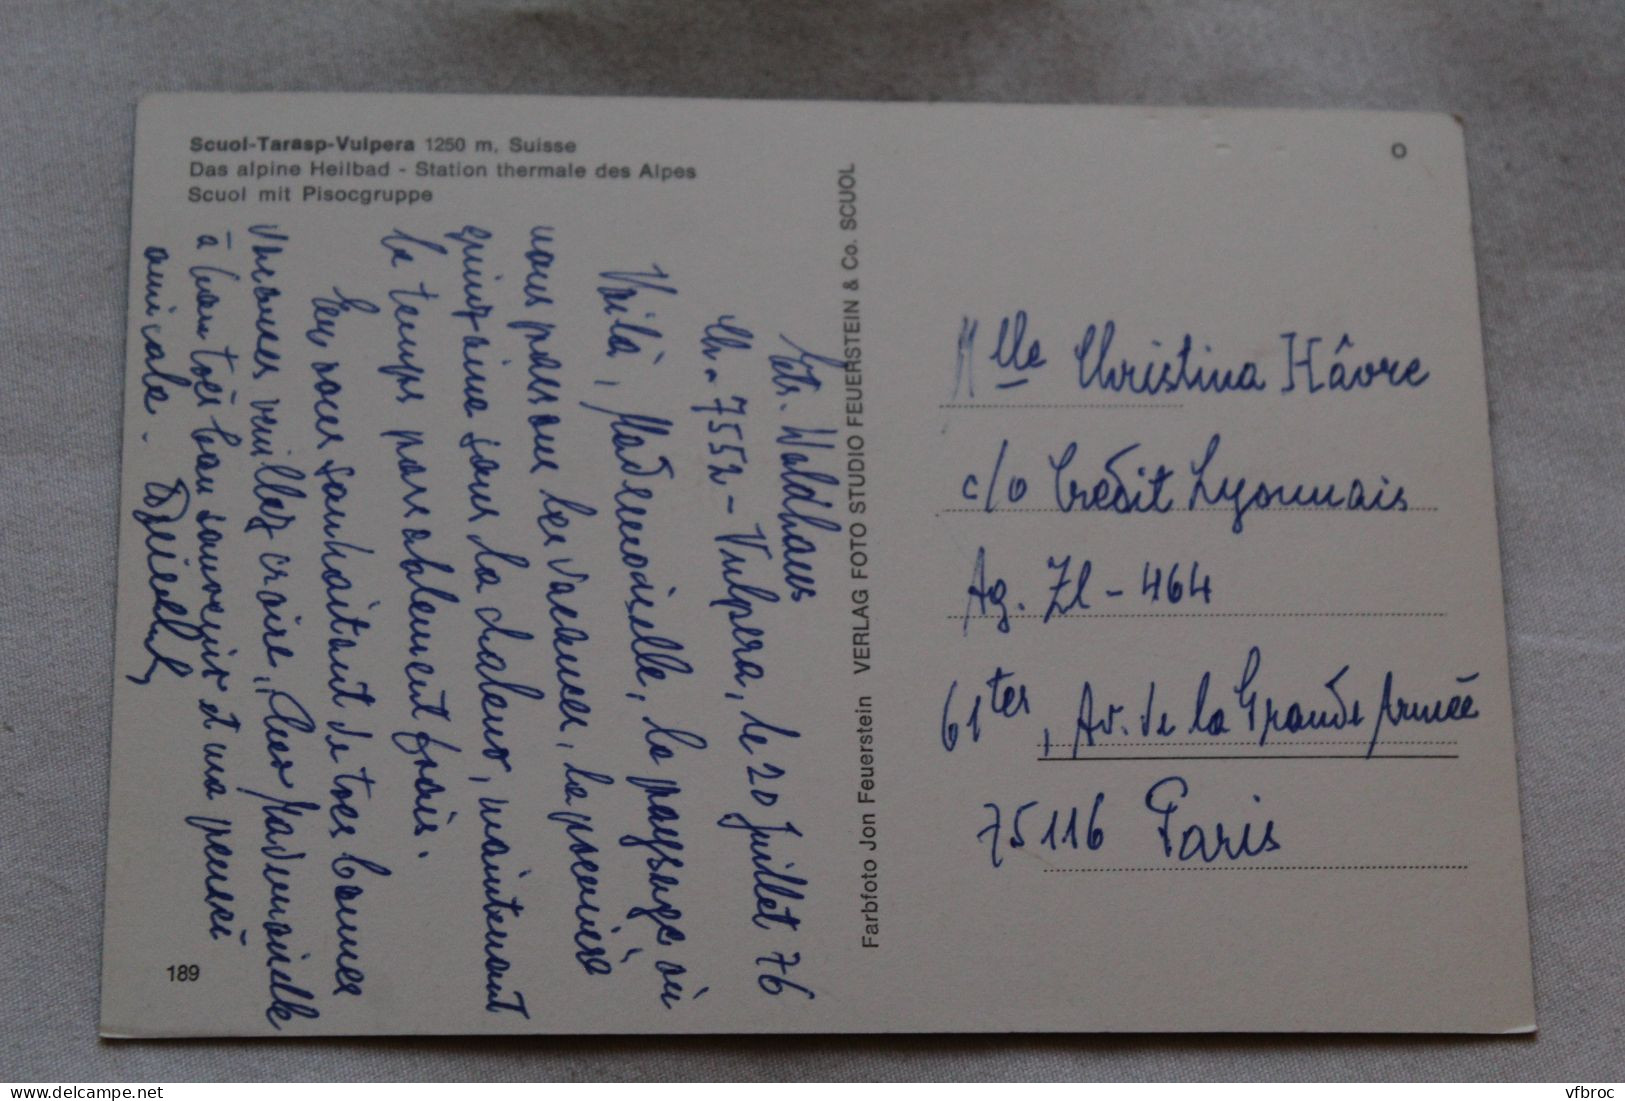 Scuol-Tarasp-Vulpera 1250 m, Suisse
Das alpine Heilbad - Station thermale des Alpes
Scuol mit Pisocgruppe
Ets. Waldhaus
CH-7552-Vulpera, le 20 Juillet 76
Voilà, Mademoiselle, le paysage où
nous passons les vacances, la première
quinzaine sous la chaleur, maintenant
le temps passablement frais.
En vous souhaitant de très bonnes
vacances veuillez croire, chère Mademoiselle
à bon très bon souvenir et ma pensée
amicale.
189
Farbfoto Jon Feuerstein VERLAG FOTO STUDIO FEUERSTEIN & Co. SCUOL
Mlle Christina Hâvre
c/o Crédit Lyonnais
Ag. ZL-464
61ter, Av. de la Grande Armée
75116 Paris
vfbroc